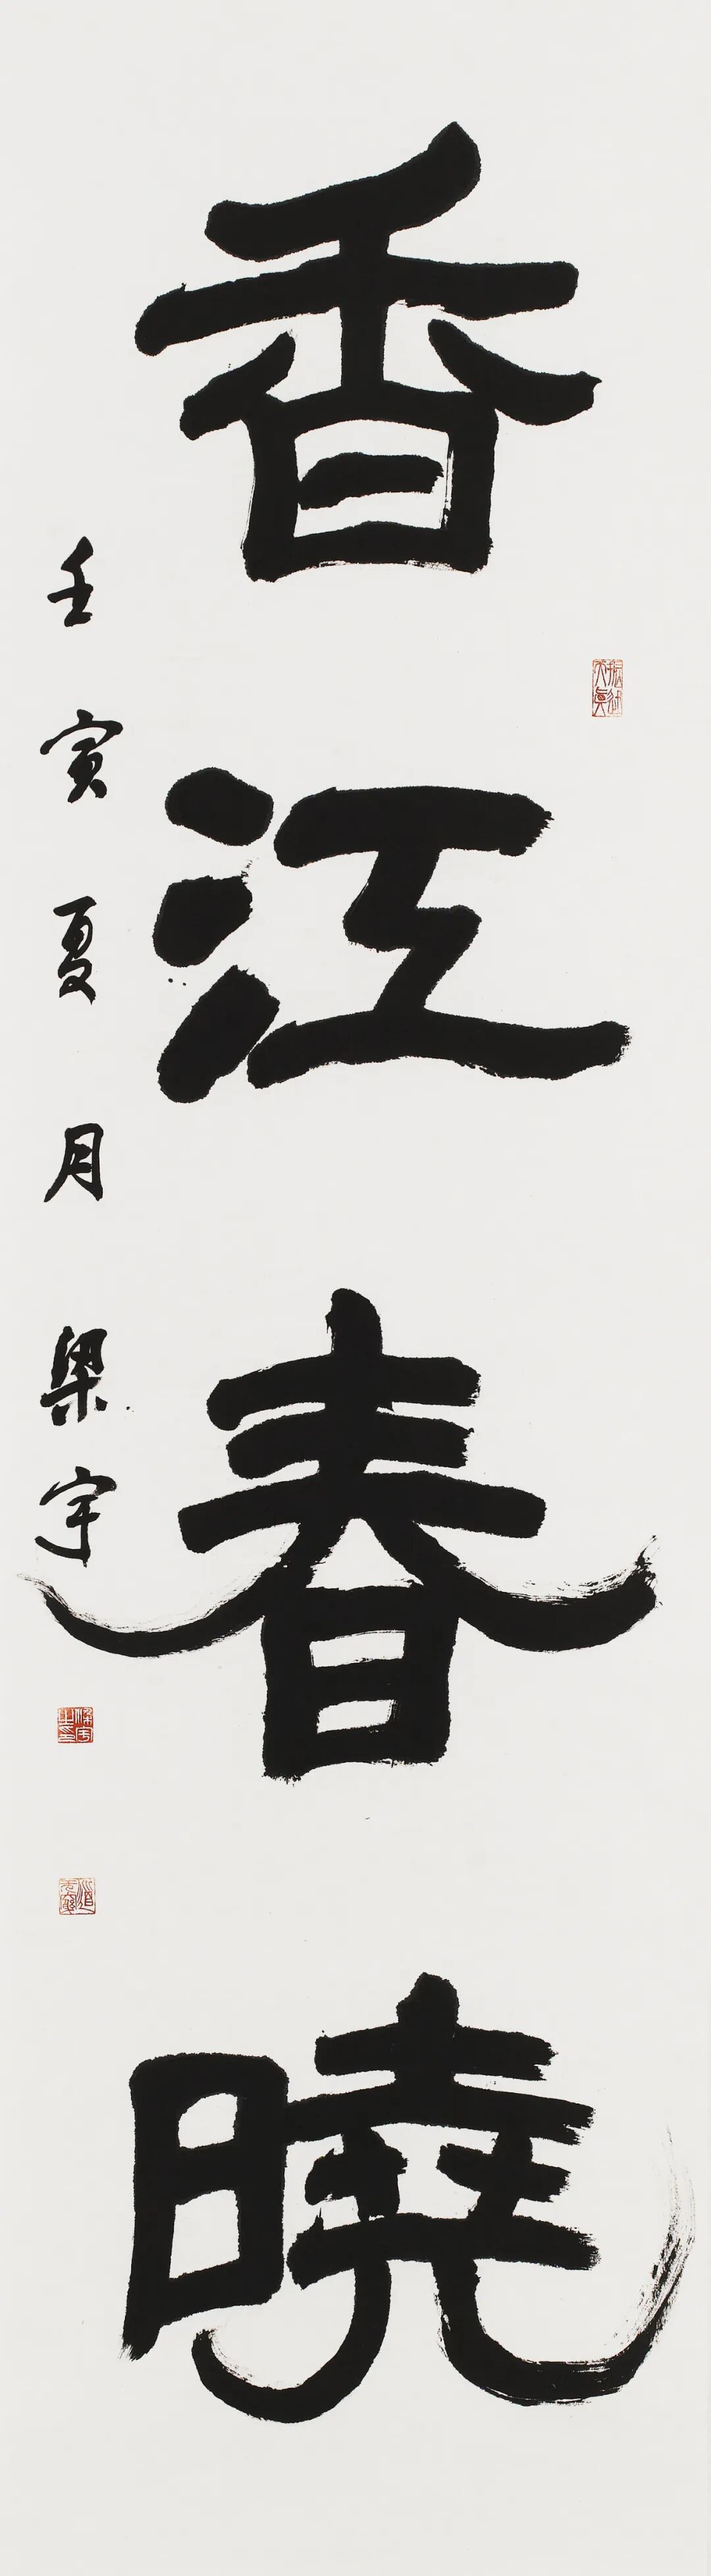 香江春曉
壬寅夏月梁宇